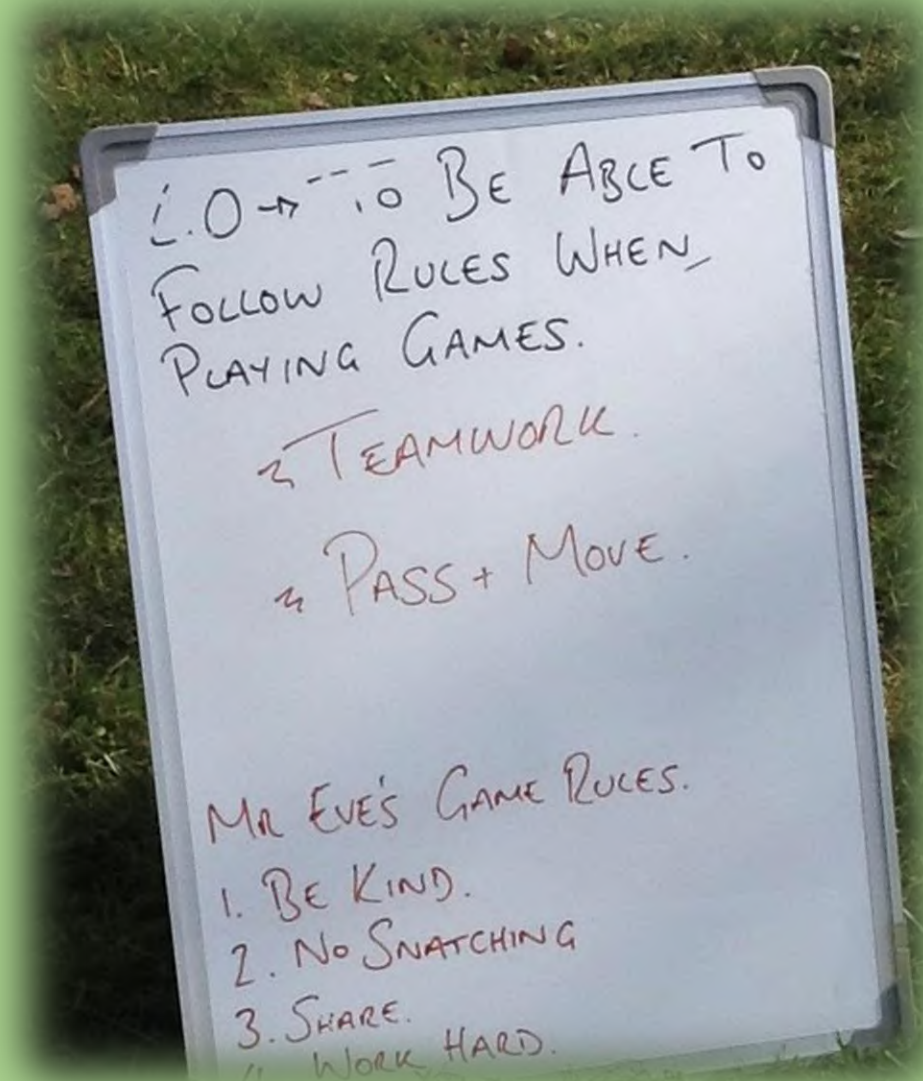 L.O → To BE ABLE To
FOLLOW RULES WHEN
PLAYING GAMES.
TEAMWORK.
PASS + MOVE.
MR EVE'S GAME RULES.
1. BE KIND.
2. No SNATCHING
3. SHARE.
4. WORK HARD.